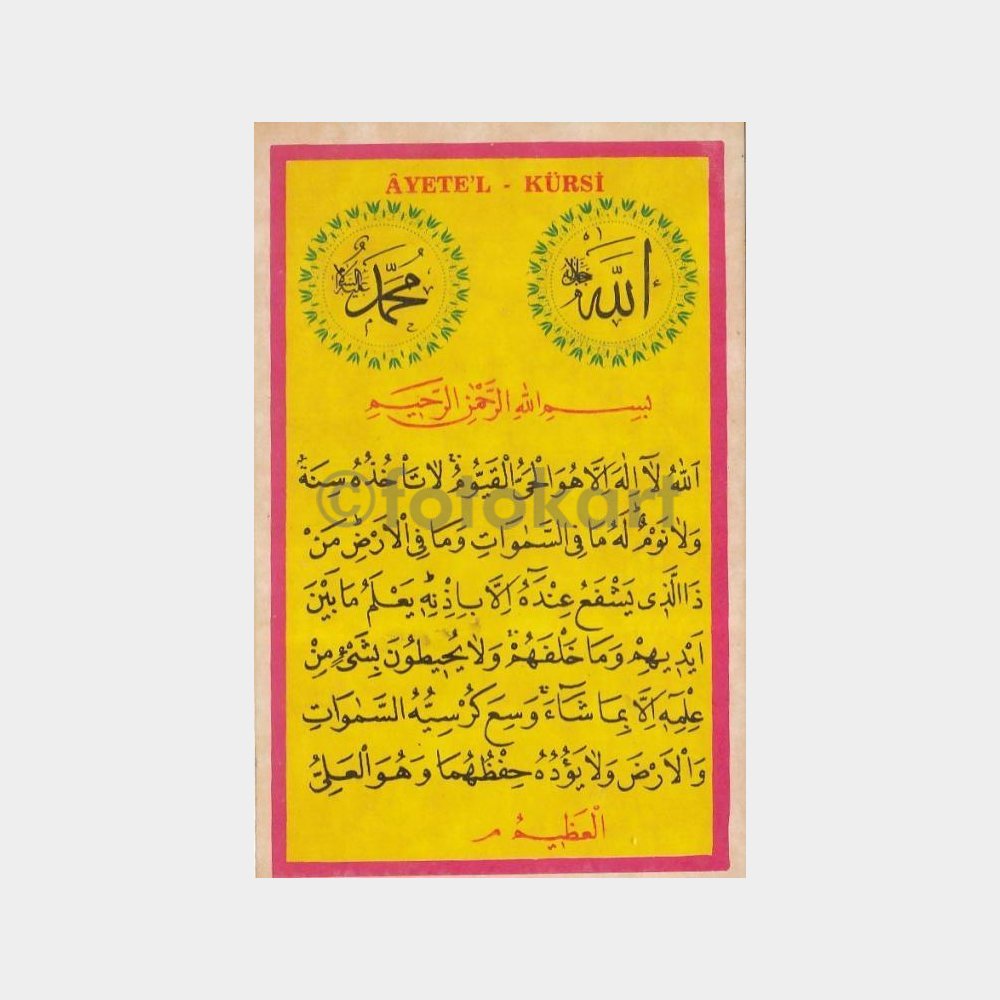 ÂYETE'L - KÜRSİ
اللّٰه جل جلاله
محمد عليه السلام
بِسْمِ اللهِ الرَّحْمٰنِ الرَّحِيمِ
اَللهُ لَآ اِلٰهَ اِلَّا هُوَ الْحَيُّ الْقَيُّومُ ۚ لَا تَأْخُذُهُ سِنَةٌ
وَلَا نَوْمٌ لَهُ مَا فِى السَّمٰوَاتِ وَمَا فِى الْاَرْضِ مَنْ
ذَا الَّذِى يَشْفَعُ عِنْدَهُٓ اِلَّا بِاِذْنِهِ يَعْلَمُ مَا بَيْنَ
اَيْدِيهِمْ وَمَا خَلْفَهُمْ ۚ وَلَا يُحِيطُونَ بِشَيْءٍ مِنْ
عِلْمِهِٓ اِلَّا بِمَا شَآءَ ۚ وَسِعَ كُرْسِيُّهُ السَّمٰوَاتِ
وَالْاَرْضَ وَلَا يَؤُدُهُ حِفْظُهُمَا وَهُوَ الْعَلِيُّ
الْعَظِيمُ م
©fotokart